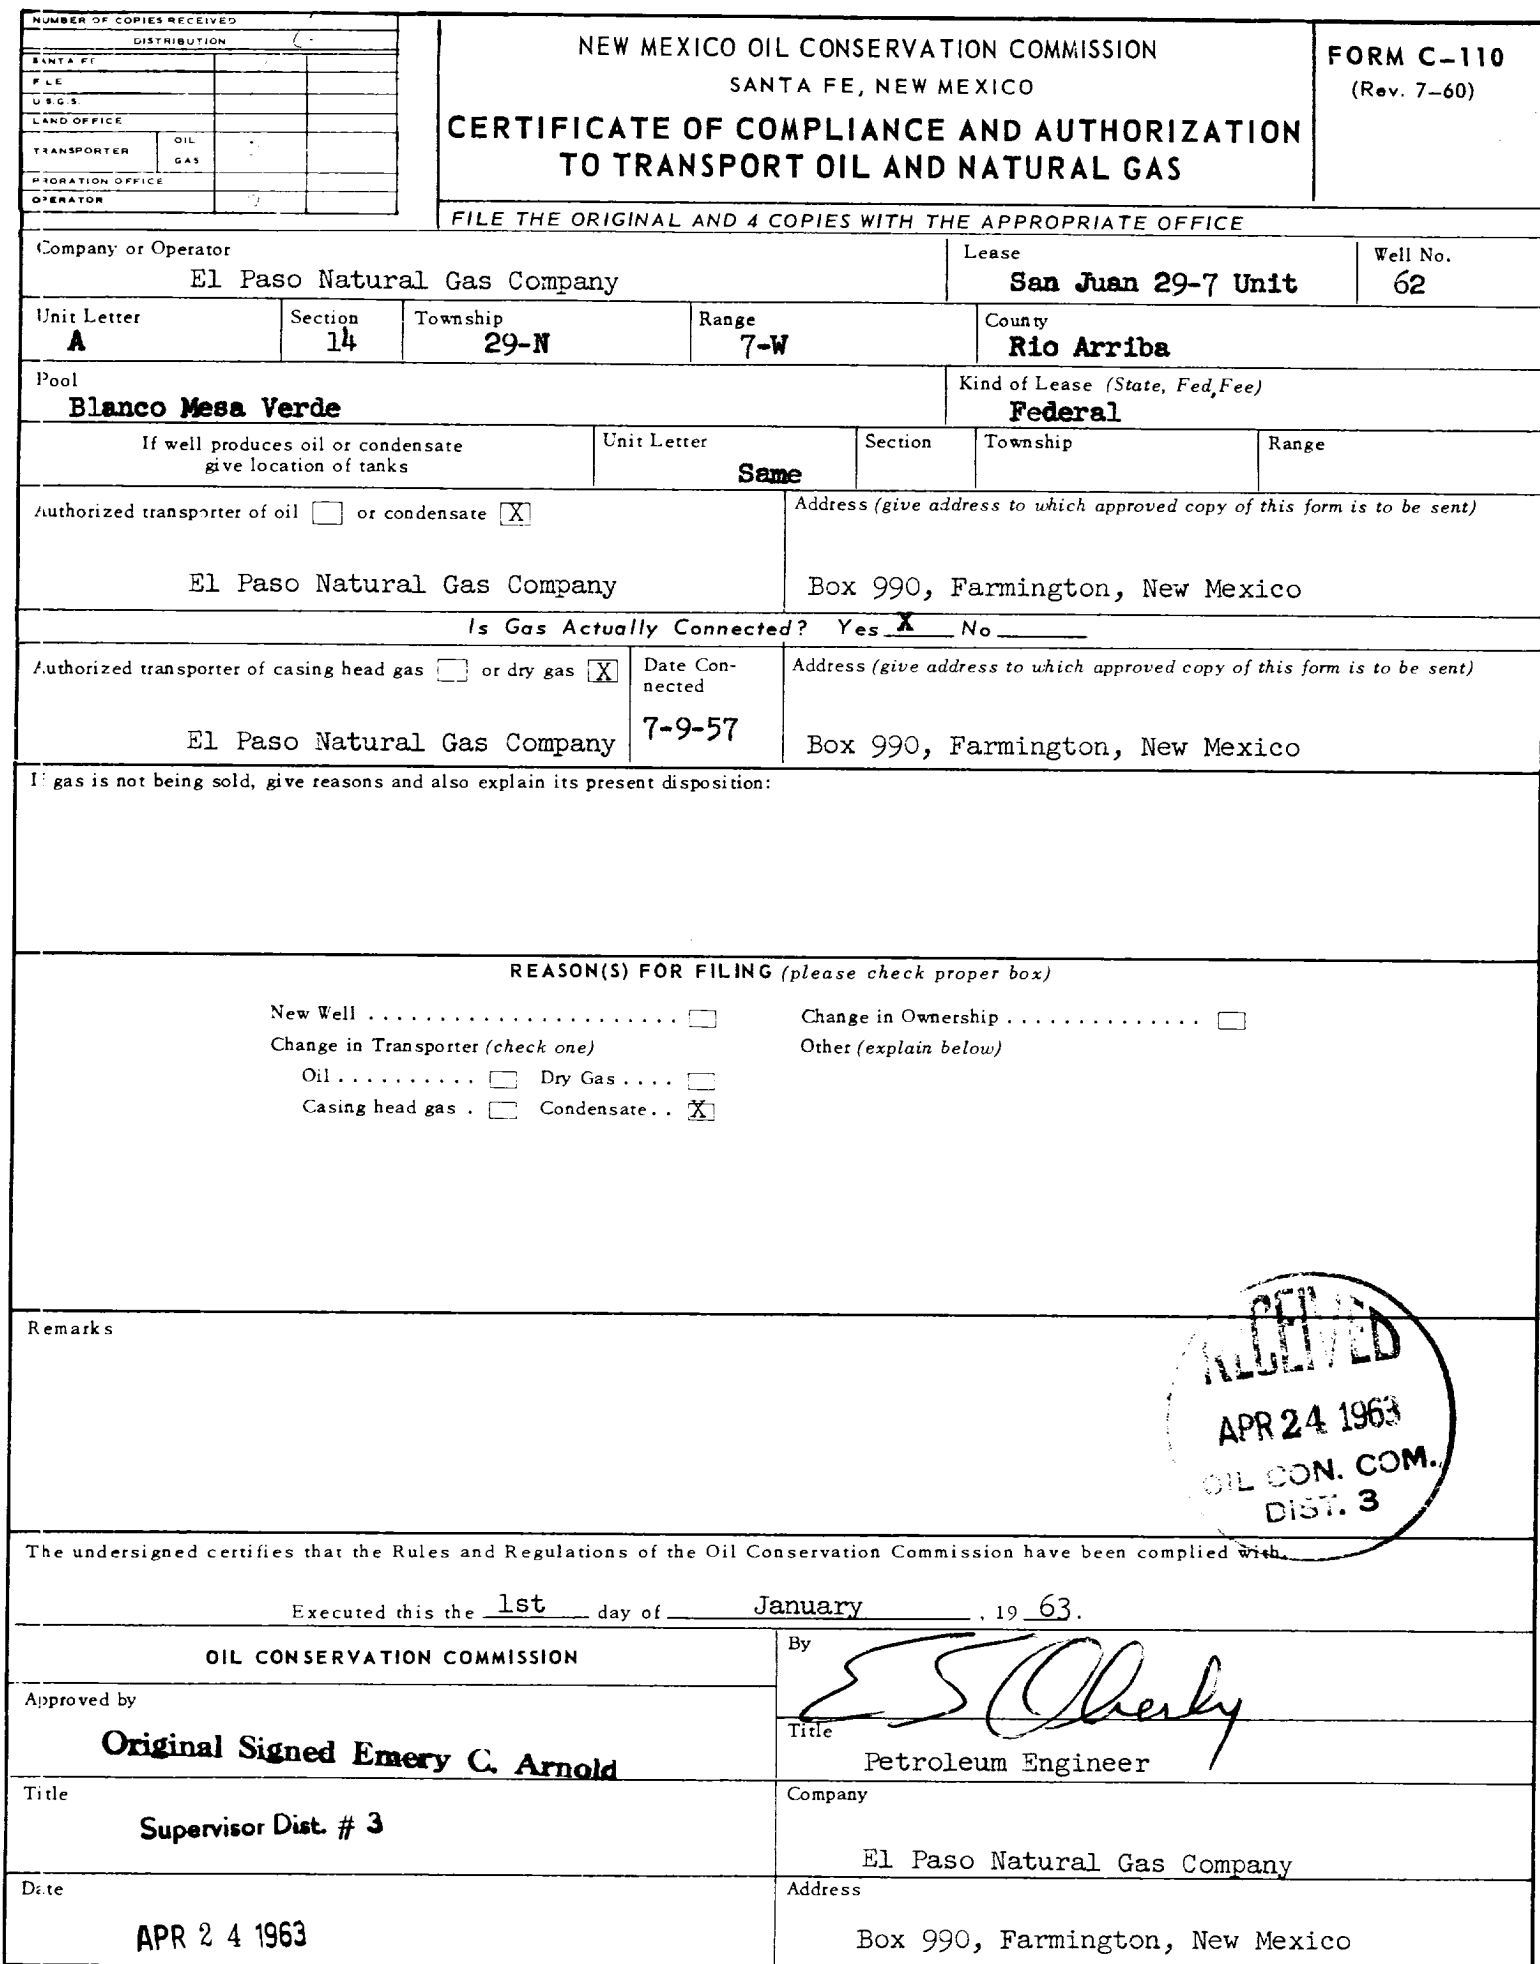 NUMBER OF COPIES RECEIVED
DISTRIBUTION
SANTA FE
FILE
U.S.G.S.
LAND OFFICE
TRANSPORTER OIL
GAS
PRORATION OFFICE
OPERATOR
NEW MEXICO OIL CONSERVATION COMMISSION
SANTA FE, NEW MEXICO
CERTIFICATE OF COMPLIANCE AND AUTHORIZATION
TO TRANSPORT OIL AND NATURAL GAS
FORM C-110
(Rev. 7-60)
FILE THE ORIGINAL AND 4 COPIES WITH THE APPROPRIATE OFFICE
Company or Operator
El Paso Natural Gas Company
Lease
San Juan 29-7 Unit
Well No.
62
Unit Letter
A
Section
14
Township
29-N
Range
7-W
County
Rio Arriba
Pool
Blanco Mesa Verde
Kind of Lease (State, Fed, Fee)
Federal
If well produces oil or condensate
give location of tanks
Unit Letter
Same
Section
Township
Range
Authorized transporter of oil or condensate X
El Paso Natural Gas Company
Address (give address to which approved copy of this form is to be sent)
Box 990, Farmington, New Mexico
Is Gas Actually Connected? Yes X No
Authorized transporter of casing head gas or dry gas X
El Paso Natural Gas Company
Date Con-
nected
7-9-57
Address (give address to which approved copy of this form is to be sent)
Box 990, Farmington, New Mexico
If gas is not being sold, give reasons and also explain its present disposition:
REASON(S) FOR FILING (please check proper box)
New Well . . . . . . . . . . . . . . . . . . . . . .
Change in Ownership . . . . . . . . . . . . . .
Change in Transporter (check one)
Other (explain below)
Oil . . . . . . . . . . Dry Gas . . . .
Casing head gas . Condensate . . X
Remarks
RECEIVED
APR 24 1963
OIL CON. COM.
DIST. 3
The undersigned certifies that the Rules and Regulations of the Oil Conservation Commission have been complied with.
Executed this the 1st day of January, 19 63.
OIL CONSERVATION COMMISSION
Approved by
Original Signed Emery C. Arnold
Title
Supervisor Dist. # 3
Date
APR 2 4 1963
By
E S Oberly
Title
Petroleum Engineer
Company
El Paso Natural Gas Company
Address
Box 990, Farmington, New Mexico